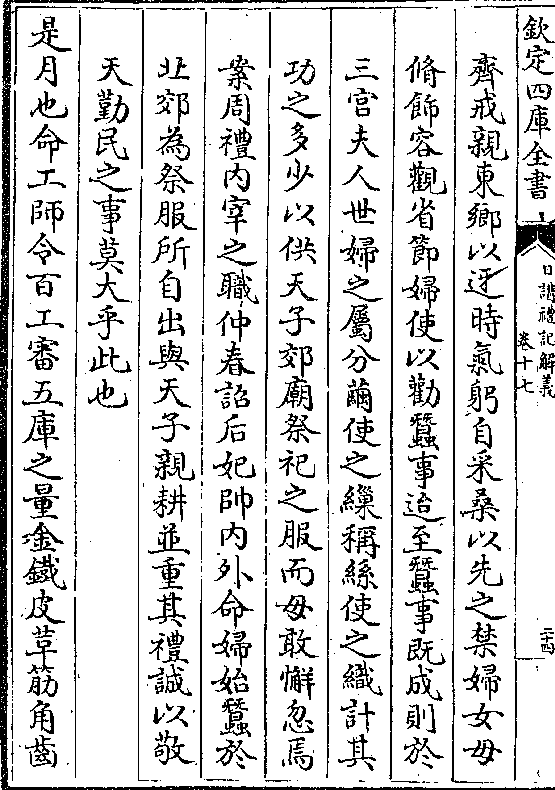 欽定四庫全書
日講禮記解義
卷十七
二十四
齊戒親東鄉以迓時氣躬自采桑以先之禁婦女毋
脩飾容觀省節婦使以勸蠶事迨至蠶事既成則於
三宮夫人世婦之屬分繭使之繅稱絲使之織計其
功之多少以供天子郊廟祭祀之服而毋敢懈忽焉
案周禮內宰之職仲春詔后妃帥內外命婦始蠶於
北郊為祭服所自出與天子親耕並重其禮誠以敬
天勤民之事莫大乎此也
是月也命工師令百工審五庫之量金鐵皮革筋角齒